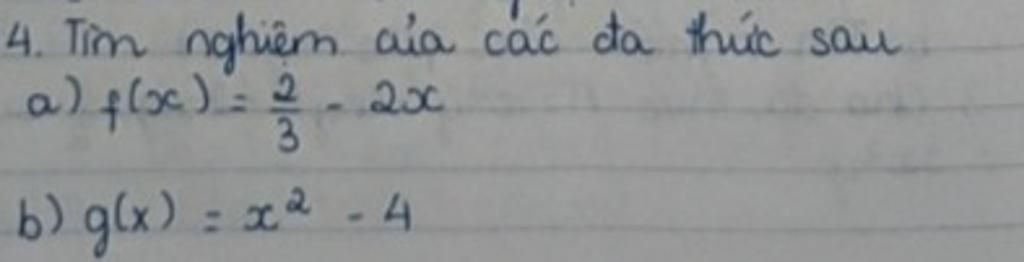 4. Tìm nghiệm của các đa thức sau
a) f(x) = 2/3 - 2x
b) g(x) = x² - 4